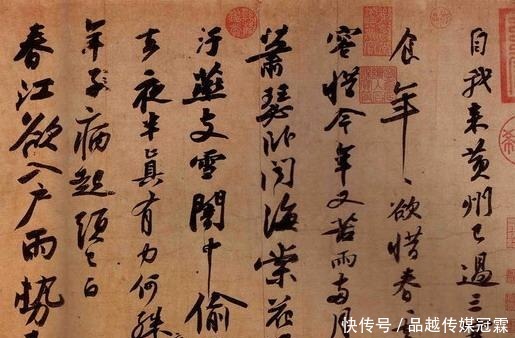 自我来黄州已过三
食年〻欲惜春
容惜今年又苦雨两月
萧瑟卧闻海棠花
污燕支雪闇中偷
去夜半真有力何殊
年子病起须已白
春江欲入户雨势
快传号／品越传媒冠霖